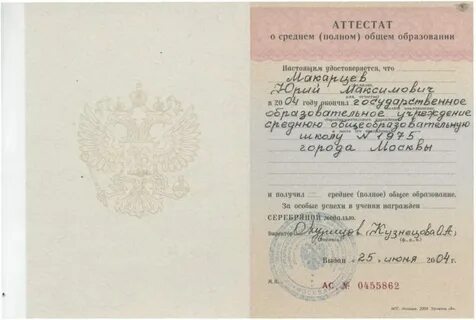 АТТЕСТАТ
о среднем (полном) общем образовании
Настоящим удостоверяется, что
Макарцев
Юрий Максимович
в 2004 году окончил государственное
образовательное учреждение
среднюю общеобразовательную
школу N 1975
города Москвы
и получил среднее (полное) общее образование.
За особые успехи в учении награжден
СЕРЕБРЯНОЙ медалью.
Директор (Кузнецова О.А.)
Выдан 25 июня 2004 г.
М.П.
АС № 0455862